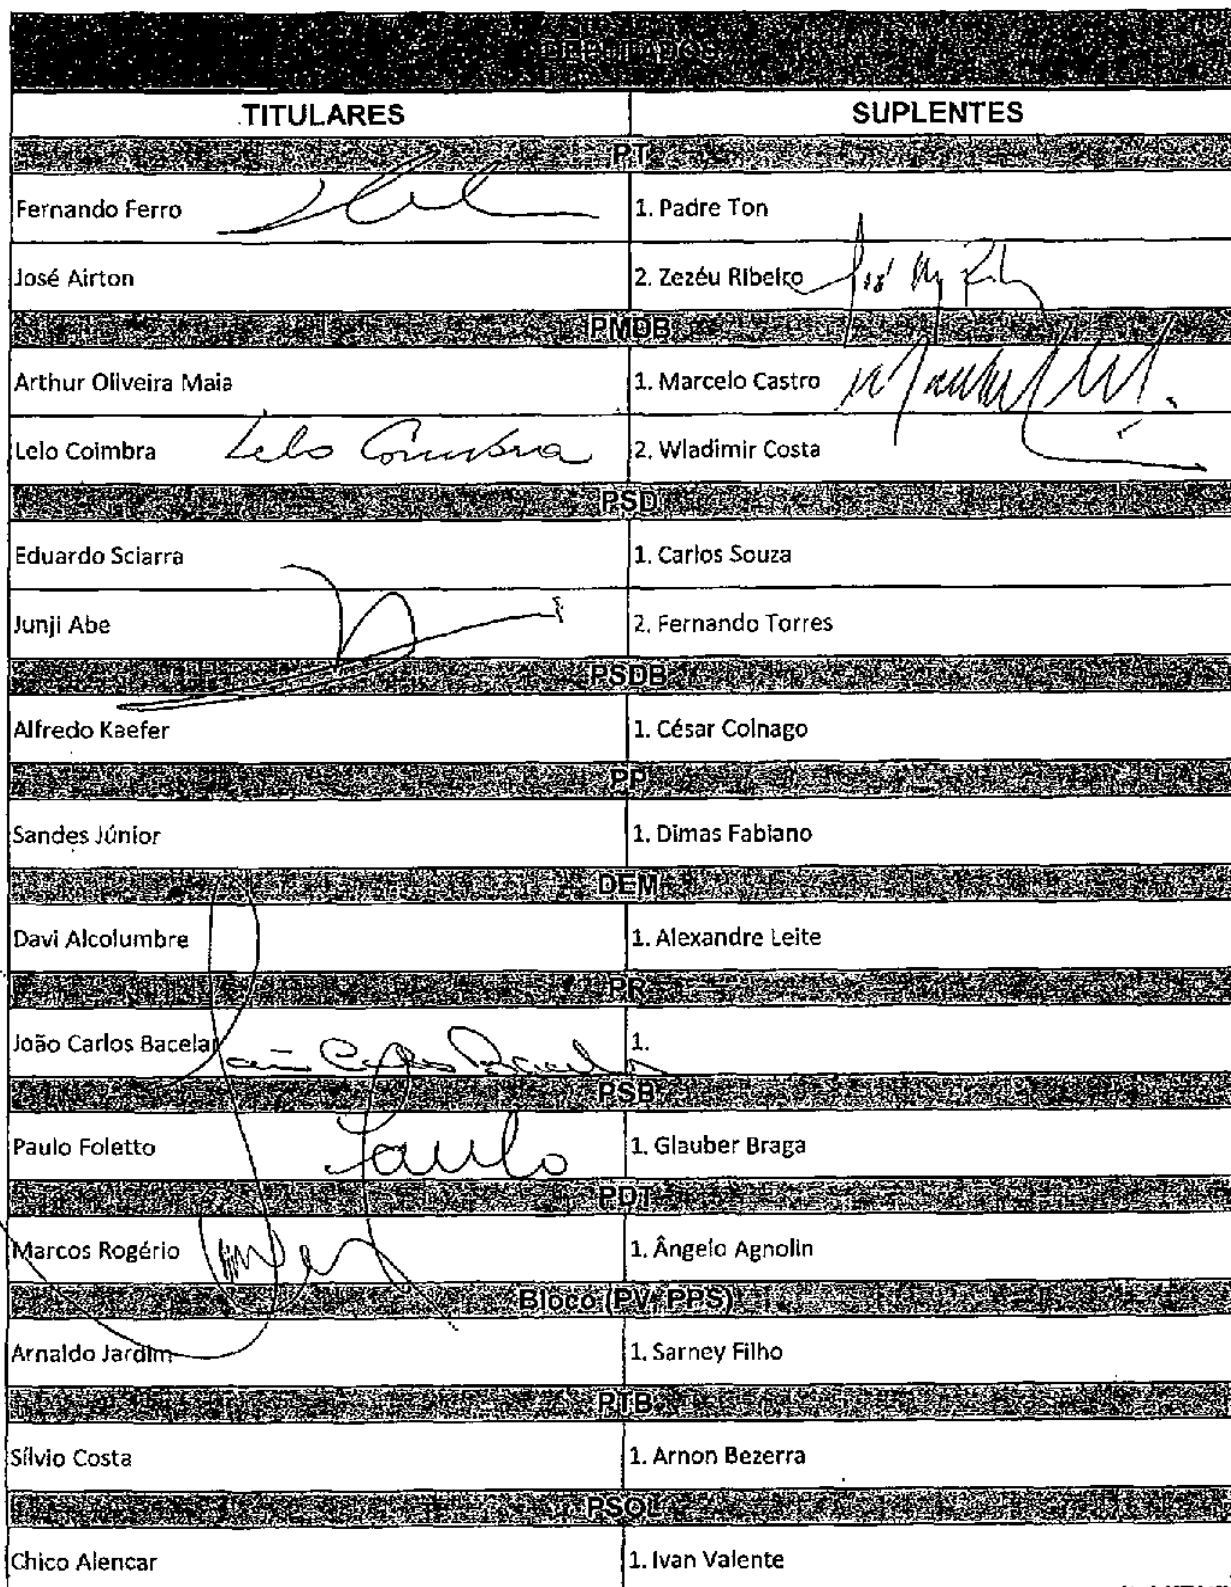 DEPUTADOS
TITULARES SUPLENTES
PT
Fernando Ferro 1. Padre Ton
José Airton 2. Zezéu Ribeiro
PMDB
Arthur Oliveira Maia 1. Marcelo Castro
Lelo Coimbra Lelo Coimbra 2. Wladimir Costa
PSD
Eduardo Sciarra 1. Carlos Souza
Junji Abe 2. Fernando Torres
PSDB
Alfredo Kaefer 1. César Colnago
PP
Sandes Júnior 1. Dimas Fabiano
DEM
Davi Alcolumbre 1. Alexandre Leite
PR
João Carlos Bacelar João Carlos Bacelar 1.
PSB
Paulo Foletto Paulo 1. Glauber Braga
PDT
Marcos Rogério 1. Ângelo Agnolin
Bloco (PV, PPS)
Arnaldo Jardim 1. Sarney Filho
PTB
Sílvio Costa 1. Arnon Bezerra
PSOL
Chico Alencar 1. Ivan Valente